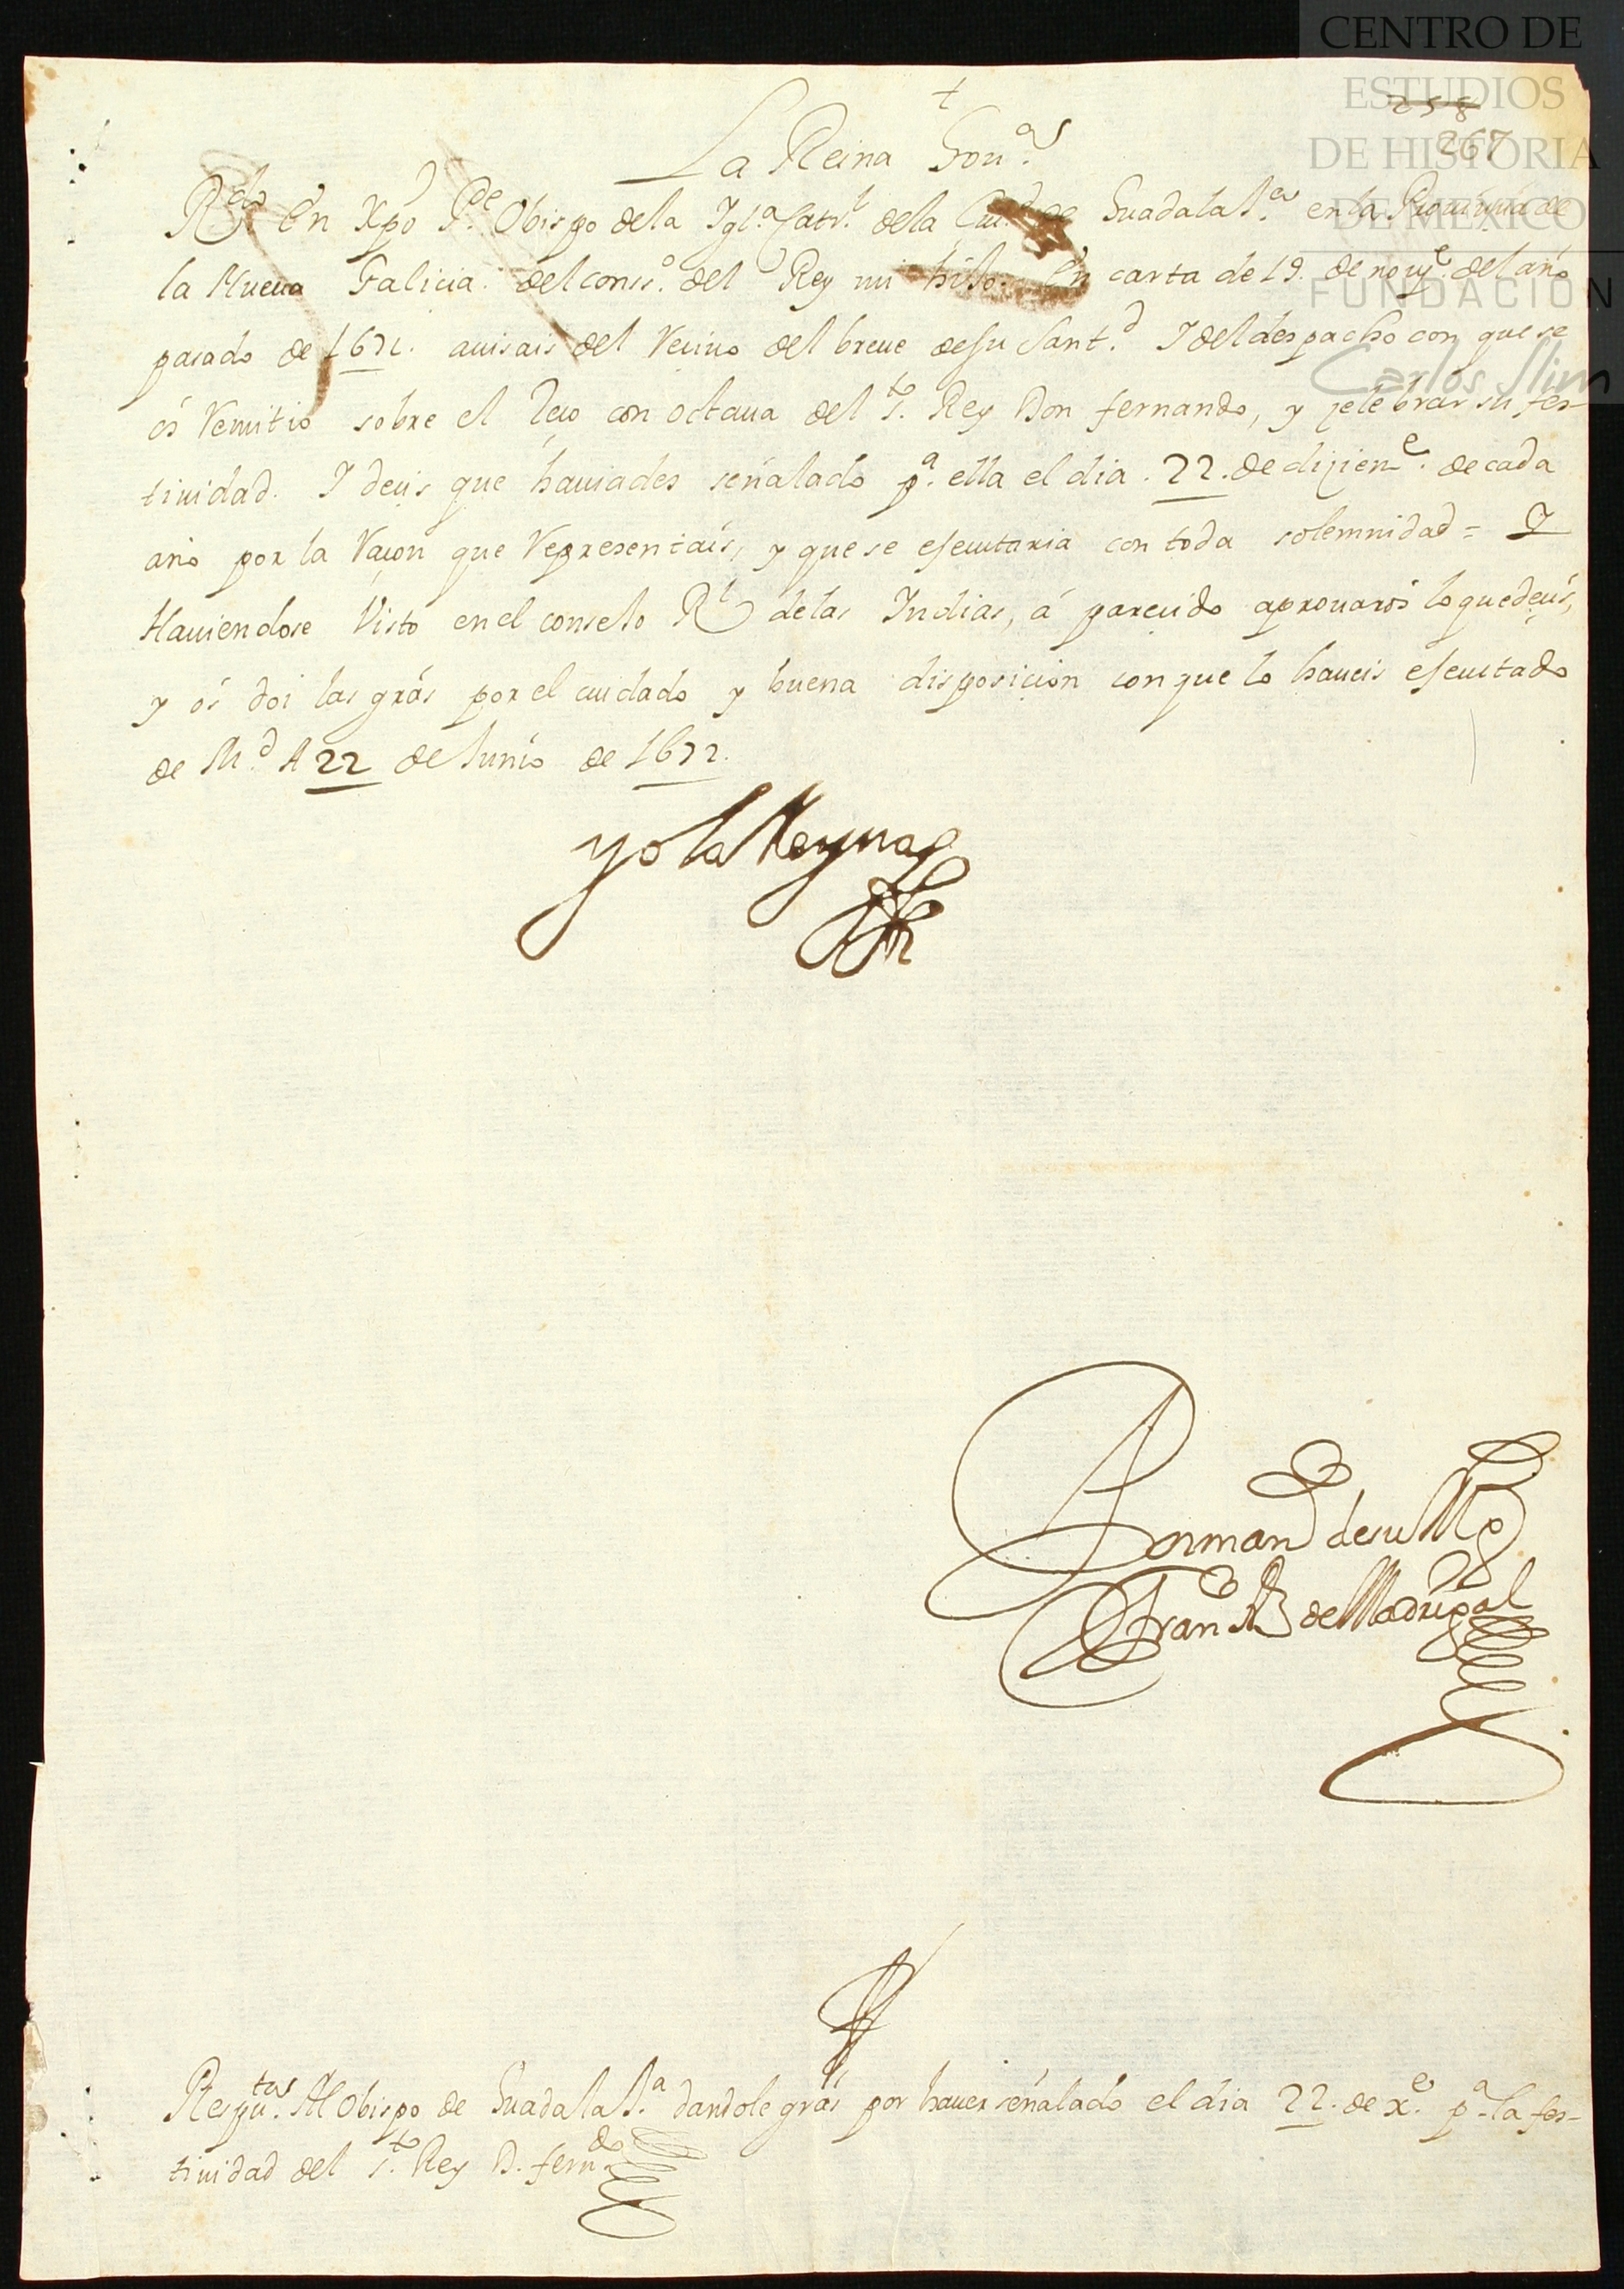 CENTRO DE
ESTUDIOS
DE HISTORIA
DE MÉXICO
FUNDACIÓN
Carlos Slim
258
267
+
La Reina Gou.ª
R.do En Xpo P.e Obispo dela Igl.ª Catr.l dela Ciu.d de Guadalax.ª en la Prouinçia de
la Nueua Galicia. del conss.º del Rey mi hiJo. En carta de 19. de nou.e del año
pasado de 1671. auisais del Reciuo del breue de su Sant.d I del despacho con que se
ós Remitio sobre el reço con octaua del S.to Rey Don fernando, y çelebrar su fes-
tiuidad. I deçis que hauiades señalado p.ª ella el dia .22. de diçiem.e de cada
año por la Raçon que Representais, y que se eJecutaria con toda solemnidad = Y
Hauiendose Visto en el conseJo R.l de las Indias, á pareçido aprouaros lo que deçis,
y ós doi las grás por el cuidado y buena disposicion con que lo haueis eJecutado
de M.d A 22 de Junio de 1672.
yo la Reyna
Por mand.º de su Mg.d
Fran.co Frz de Madrigal
Respu.tas Al Obispo de Guadalax.ª dandole grás por hauer señalado el dia 22. de x.e p.ª la fes-
tiuidad del S.to Rey D. fern.do